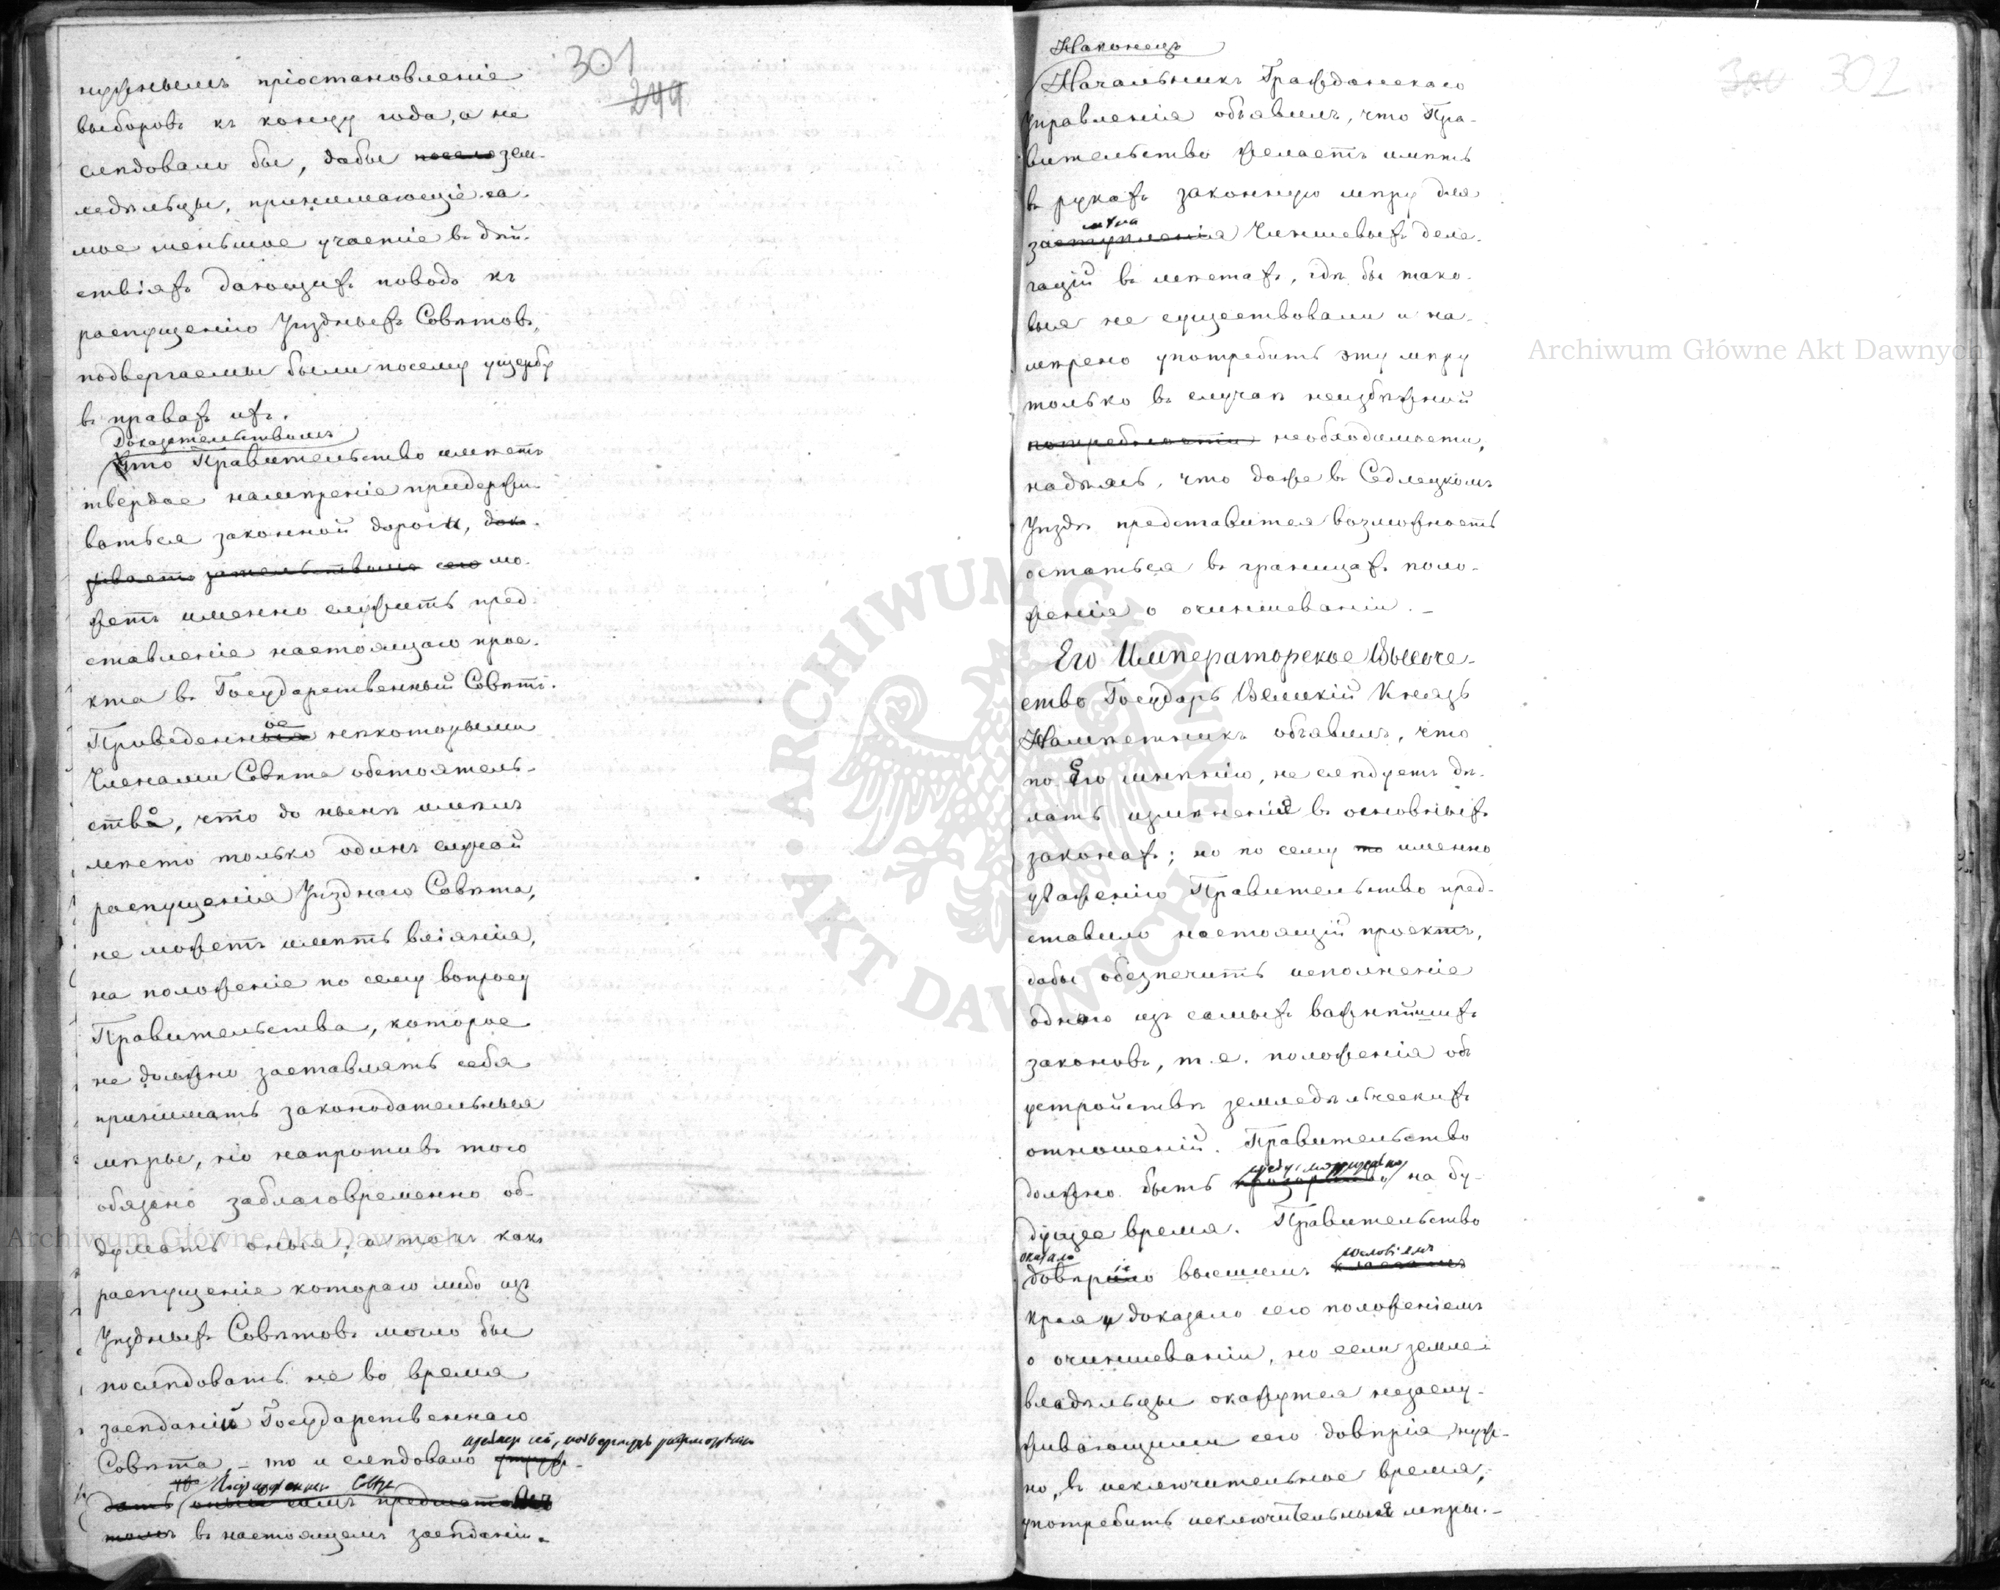 301
244
нужнымъ пріостановленіе
выборовъ къ концу года, а не
слѣдовало бы, дабы после зем-
ледѣльцы, принимающіе са-
мое меньшое участіе въ дѣй-
ствіяхъ дающихъ поводъ къ
распущенію Уѣздныхъ Совѣтовъ,
подвергаемы были посему ущербу
въ правахъ ихъ.
Доказательствомъ
что Правительство имѣетъ
твердое намѣреніе придержи-
ваться законной дороги, дока-
зываетъ сего мо-
жетъ именно служить пред-
ставленіе настоящаго прое-
кта въ Государственный Совѣтъ.
ое
Приведенныя нѣкоторыми
Членами Совѣта обстоятель-
ство, что до нынѣ имѣлъ
мѣсто только одинъ случай
распущенія Уѣзднаго Совѣта,
не можетъ имѣть вліянія,
на положеніе по сему вопросу
Правительства, которое
не должно заставлять себя
принимать законодательныя
мѣры, но напротивъ того
обязано заблаговременно об-
думать оныя, а такъ какъ
распущеніе котораго либо изъ
Уѣздныхъ Совѣтовъ могло бы
послѣдовать не во время
засѣданій Государственнаго
Совѣта, – то и слѣдовало
дать оныя симъ предметомъ
томъ въ настоящемъ засѣданіи.
302
Наконецъ
Начальникъ Гражданскаго
Управленія объявилъ, что Пра-
вительство желаетъ имѣть
въ рукахъ законную мѣру для
заступленія Чиншевыхъ деле-
гацій въ мѣстахъ, гдѣ бы тако-
выя не существовали и на-
мѣрено употребить эту мѣру
только въ случаѣ неизбѣжной
потребности необходимости,
надѣясь, что даже въ Седлецкомъ
Уѣздѣ представится возможность
остаться въ границахъ поло-
женія о очиншеваніи. –
Его Императорское Высоче-
ство Государь Великій Князь
Намѣстникъ объявилъ, что
по Его мнѣнію, не слѣдуетъ дѣ-
лать измѣненій въ основныхъ
законахъ; но по сему то именно
уваженію Правительство пред-
ставило настоящій проектъ,
дабы обезпечить исполненіе
одного изъ самыхъ важнѣйшихъ
законовъ, т. е. положенія объ
устройствѣ земледѣльческихъ
отношеній. Правительство
должно быть на бу-
дущее время. Правительство
оказало сословіямъ
довѣріе высшимъ классамъ
края и доказало сего положеніемъ
о очиншеваніи, но если земле-
владѣльцы окажутся незаслу-
живающими сего довѣрія, нуж-
но, въ исключительное время,
употребить исключительныя мѣры. –
Archiwum Główne Akt Dawnych
Archiwum Główne Akt Dawnych
ARCHIWUM GŁÓWNE AKT DAWNYCH